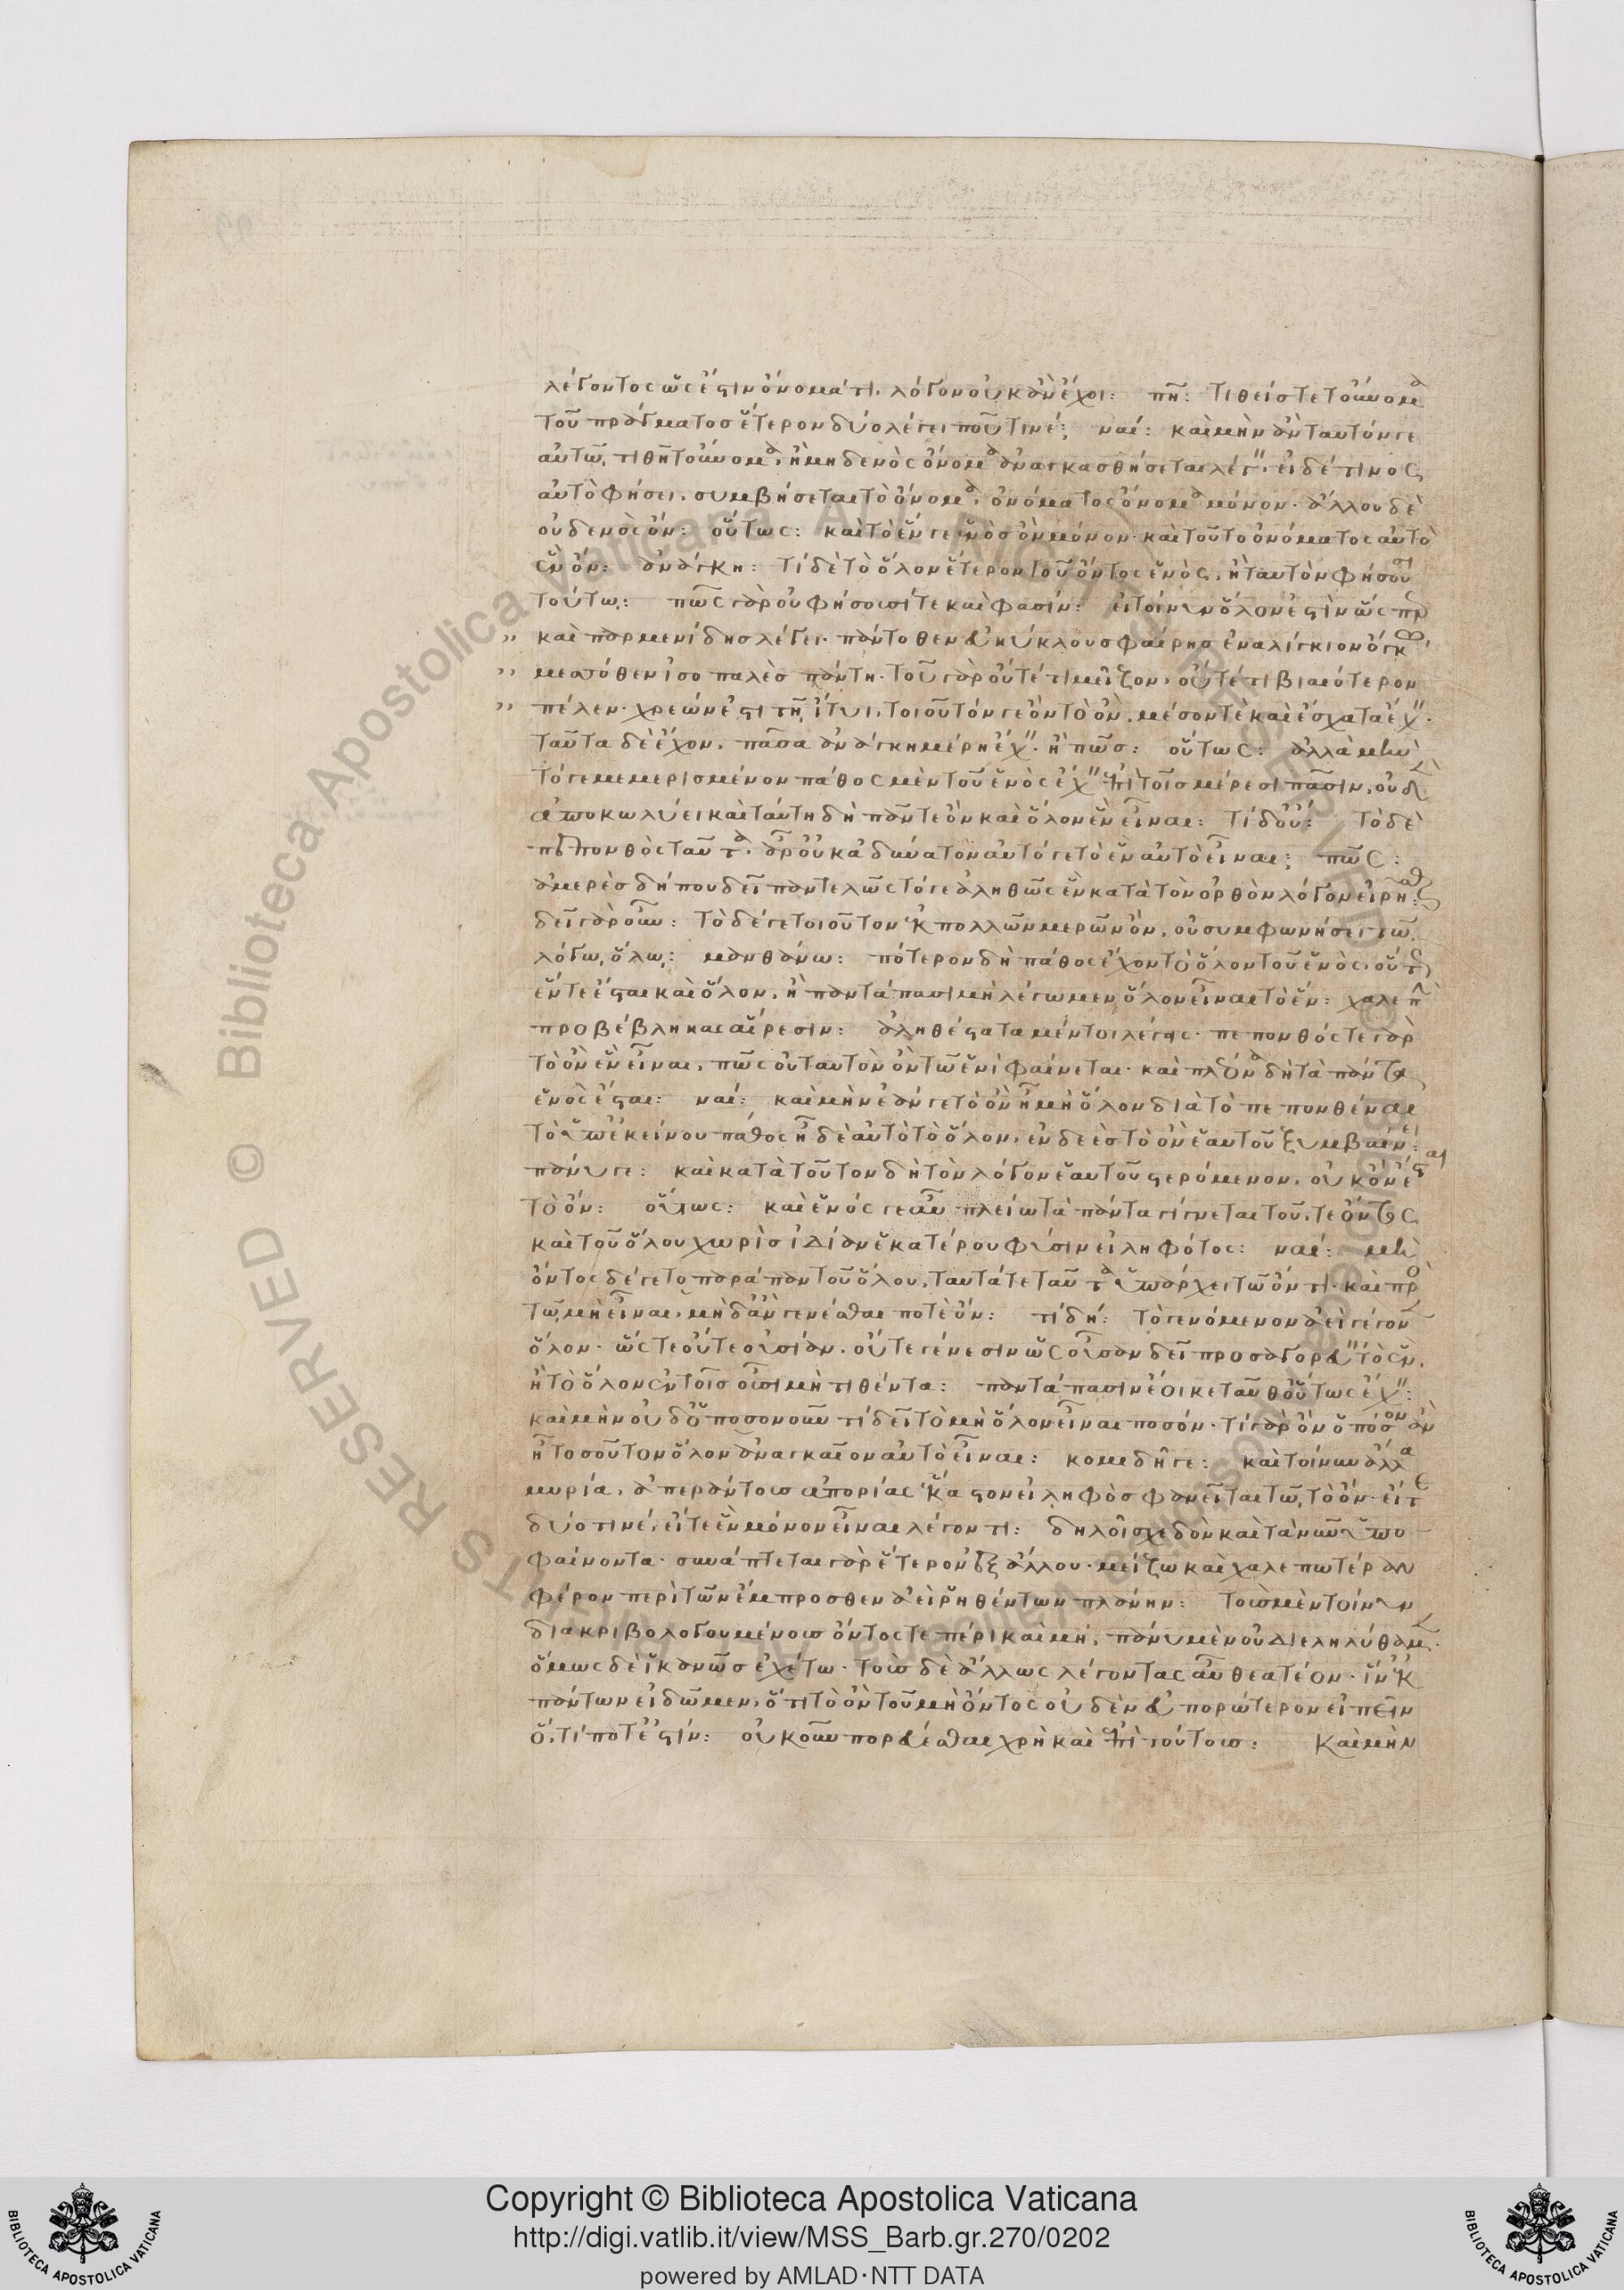 λέγοντος ὡς ἔστιν ὄνομά τι, λόγον οὐκ ἂν ἔχοι: πῆ: τιθείς τε τοὔνομα
τοῦ πράγματος ἕτερον δύο λέγει πού τινέ; ναί: καὶ μὴν ἂν ταυτόν γε
αὐτῶ, τιθῆ τοὔνομα, ἢ μηδενὸς ὄνομα ἀναγκασθήσεται λέγειν, εἰ δέ τινος
αὐτὸ φήσει, συμβήσεται τὸ ὄνομα, ὀνόματος ὄνομα μόνον· ἄλλου δὲ
οὐδενὸς ὄν: οὕτως: καὶ τὸ ἕν γε ἑνὸς ὂν μόνον· καὶ τοῦτο ὀνόματος αὐτὸ
ἓν ὄν: ἀνάγκη: τί δὲ τὸ ὅλον ἕτερον τοῦ ὄντος ἑνὸς, ἢ ταυτὸν φήσουσι
τούτω: πῶς γὰρ οὐ φήσουσί τε καὶ φασίν: εἰ τοίνυν ὅλον ἐστὶν ὥσπερ
" καὶ παρμενίδης λέγει· πάντοθεν εὐκύκλου σφαίρης ἐναλίγκιον ὄγκω,
" μεσόθεν ἰσοπαλὲς πάντη· τοῦ γὰρ οὔτέ τι μεῖζον, οὔτέ τι βιαιότερον
" πέλεν· χρεών ἐστι τῆ, ἢ τῆι, τοιοῦτόν γε ὂν τὸ ὂν, μέσον τὲ καὶ ἔσχατα ἔχει·
ταῦτα δὲ ἔχον, πᾶσα ἀνάγκη μέρη ἔχειν· ἢ πῶς: οὕτως: ἀλλὰ μὴν
τό γε μεμερισμένον πάθος μὲν τοῦ ἑνὸς ἔχειν ἐπὶ τοῖς μέρεσι πᾶσιν, οὐδὲν
ἀποκωλύει καὶ ταύτη δὴ πᾶν τε ὂν καὶ ὅλον ἓν εἶναι: τί δ οὔ: τὸ δὲ
πεπονθὸς ταῦτα, ἆρ οὐκ ἀδύνατον αὐτό γε τὸ ἓν αὐτὸ εἶναι; πῶς:
ἀμερὲς δήπου δεῖ παντελῶς τό γε ἀληθῶς ἓν κατὰ τὸν ὀρθὸν λόγον εἰρῆσθαι:
δεῖ γὰρ οὖν: τὸ δέ γε τοιοῦτον ἐκ πολλῶν μερῶν ὂν, οὐ συμφωνήσει τῶ,
λόγω, ὅλω,: μανθάνω: πότερον δὴ πάθος ἔχον τὸ ὅλον τοῦ ἑνὸς, οὕτως
ἕν τε ἔσται καὶ ὅλον, ἢ παντάπασι μὴ λέγωμεν ὅλον εἶναι τὸ ἕν: χαλεπὴν
προβέβληκας αἵρεσιν: ἀληθέστατα μέντοι λέγεις· πεπονθός τε γὰρ
τὸ ὂν ἓν εἶναι, πῶς οὐ ταυτὸν ὂν τῶ ἑνὶ φαίνεται· καὶ πλέονα δὴ τὰ πάντα
ἑνὸς ἔσται: ναί: καὶ μὴν ἐάν γε τὸ ὂν ἦ μὴ ὅλον διὰ τὸ πεπονθέναι
τὸ ὑπ ἐκείνου πάθος ἦ δὲ αὐτὸ τὸ ὅλον, ἐνδεὲς τὸ ὂν ἑαυτοῦ ξυμβαίνει:
πάνυ γε: καὶ κατὰ τοῦτον δὴ τὸν λόγον ἑαυτοῦ στερόμενον, οὐκ ὂν ἔσται
τὸ ὄν: οὕτως: καὶ ἑνός γε αὖ πλείω τὰ πάντα γίγνεται τοῦ, τε ὄντος
καὶ τοῦ ὅλου χωρὶς ἰδίαν ἑκατέρου φύσιν εἰληφότος: ναί: μὴ
ὄντος δέ γε τοπαράπαν τοῦ ὅλου, ταυτά τε ταῦτα ὑπάρχει τῶ ὄντι· καὶ πρὸς
τῶ, μὴ εἶναι, μὴ δ ἂν γενέσθαι ποτὲ ὄν: τί δή: τὸ γενόμενον ἀεὶ γέγονεν
ὅλον· ὥστε οὔτε οὐσίαν, οὔτε γένεσιν ὡς οὖσαν δεῖ προσαγορεύειν τὸ ἓν,
ἢ τὸ ὅλον ἐν τοῖς οὖσι μὴ τιθέντα: παντάπασιν ἔοικε ταῦθ οὕτως ἔχειν:
καὶ μὴν οὐδ ὁποσονοῦν τί δεῖ τὸ μὴ ὅλον εἶναι ποσόν· τί γὰρ ὂν ὁπόσον ἂν
ἦ τοσοῦτον ὅλον ἀναγκαῖον αὐτὸ εἶναι: κομιδῆ γε: καὶ τοίνυν ἄλλα
μυρία, ἀπεράντοις ἀπορίας ἕκαστον εἰληφὸς φανεῖται τῶ, τὸ ὂν· εἴτε
δύο τινέ, εἴτε ἓν μόνον εἶναι λέγοντι: δηλοῖ σχεδὸν καὶ τὰ νῦν ὑπο
φαίνοντα· συνάπτεται γὰρ ἕτερον ἐξ ἄλλου· μείζω καὶ χαλεπωτέραν
φέρον περὶ τῶν ἔμπροσθεν ἀεὶ ῥηθέντων πλάνην: τοὺς μὲν τοίνυν
διακριβολογουμένους ὄντος τε πέρι καὶ μή, πάνυ μὲν οὐ διεληλύθαμεν·
ὅμως δὲ ἱκανῶς ἐχέτω· τοὺς δὲ ἄλλως λέγοντας αὖ θεατέον· ἵν ἐκ
πάντων εἰδῶμεν, ὅτι τὸ ὂν τοῦ μὴ ὄντος οὐδὲν εὐπορώτερον εἰπεῖν
ὅ,τί ποτ ἔστίν: οὐκοῦν πορεύεσθαι χρὴ καὶ ἐπὶ τούτους: Καὶ μὴν
Copyright © Biblioteca Apostolica Vaticana
http://digi.vatlib.it/view/MSS_Barb.gr.270/0202
powered by AMLAD·NTT DATA
BIBLIOTECA APOSTOLICA VATICANA
BIBLIOTECA APOSTOLICA VATICANA